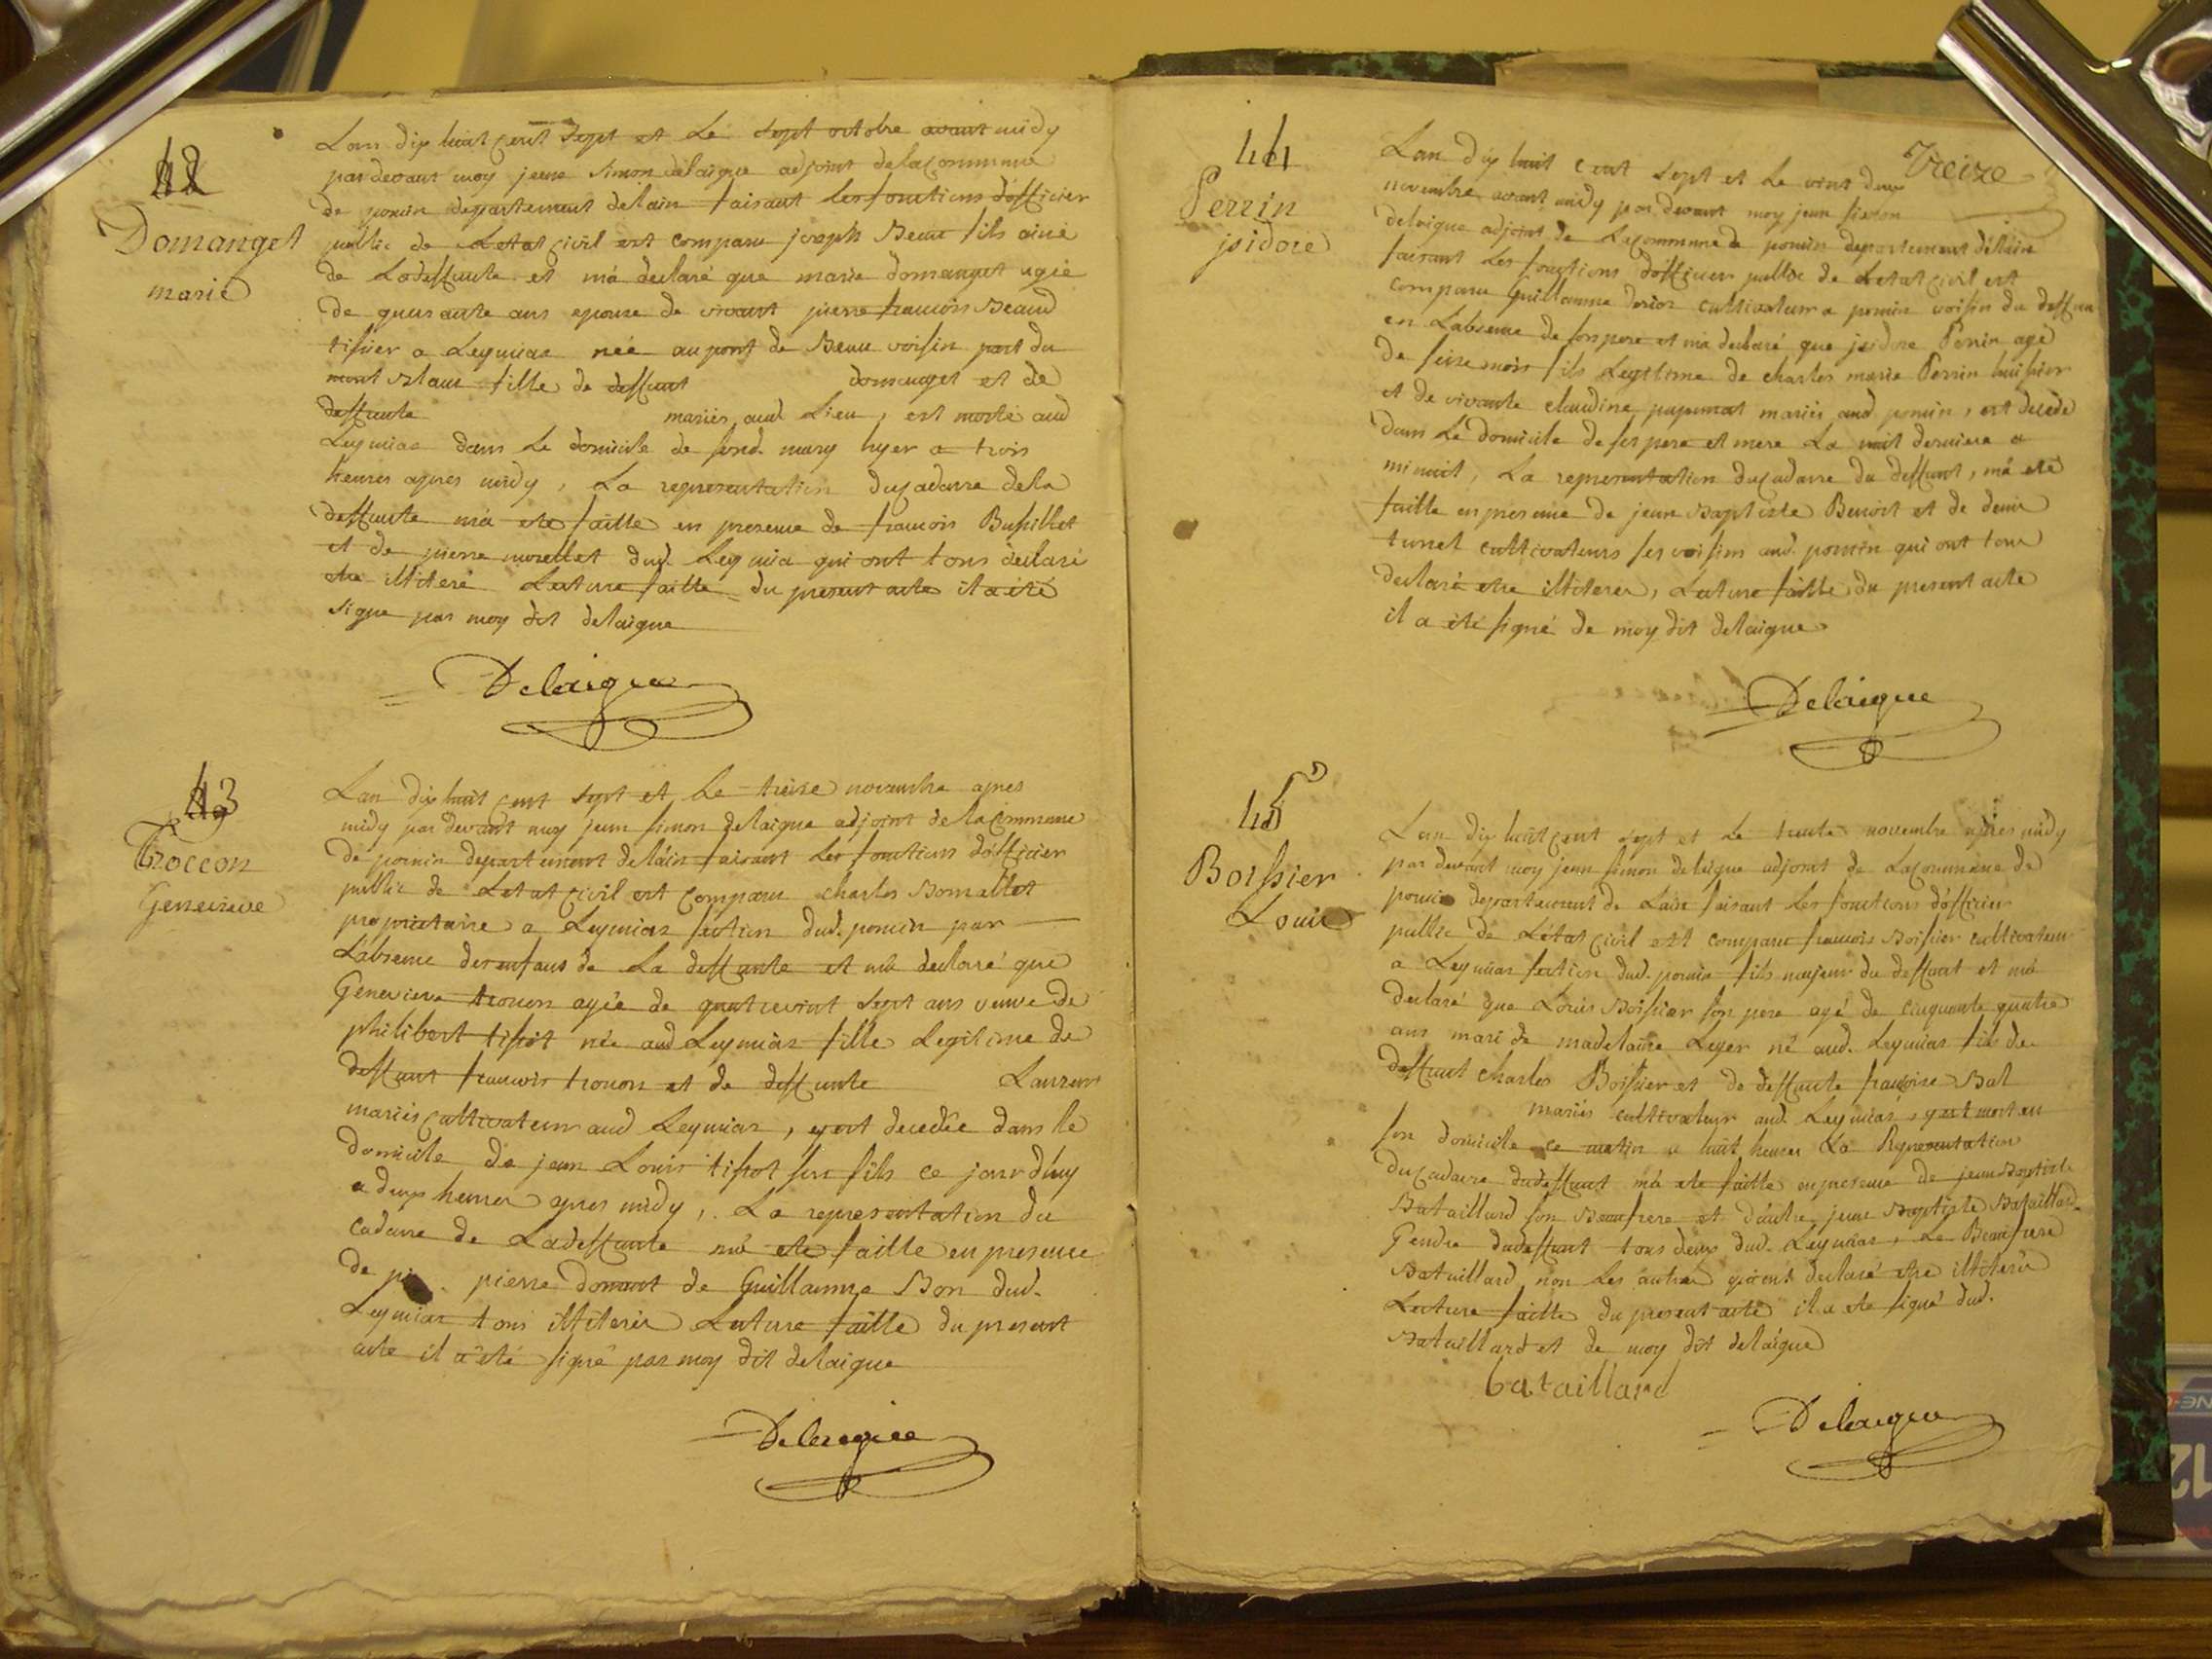 42
Domanget
marie
Lan dix huit cent sept et Le sept octobre avant midy
pardevant moy jean simon delaigue adjoint delacommune
de poncin departement delain faisant les fonctions dófficier
public de Letat civil est comparu joseph Beau fils ainé
de Ladeffunte et má declaré que marie domanget agée
de quarante ans epouse de vivant pierre francois Beaud
tissier a Leymiac née au pont de Beau voisin
fille de deffunt domanget et de
deffunte mariés aud. Lieu, est morte aud
Leymiac dans Le domicile de sond. mary hyer a trois
heures apres midy, La representation ducadavre dela
deffunte má ete faitte en presence de francois Bussillet
et de pierre morellet dud. Leymia qui ont tous declaré
etre illiteré Lecture faitte du present acte il a eté
signe par moy dit delaigue
Delaigue
43
Troccon
Genevieve
Lan dix huit cent sept et Le treise novembre apres
midy par devant moy jean simon delaigue adjoint de lacommune
de poncin departement delain faisant Les fonctions dófficier
public de Letat civil est comparu charles Bomallet
proprietaire a Leymiac section dud. poncin par
Labsence des enfans de La deffunte et má declaré que
Genevieve trocon agée de quatrevint sept ans veuve de
philibert tissot née aud Leymiac fille Legitime de
deffunt francois trocon et de deffunte Lauzun
mariés cultivateurs aud Leymiac, y est decedée dans le
domicile de jean Louis tissot son fils ce jourdhuy
a deux heures apres midy, La representation du
cadavre de Ladeffunte má ete faitte en presence
de pierre donnat de Guillaume Bon dud.
Leymiac tous illiterés Lecture faitte du present
acte il a été signé par moy dit delaigue
Delaigue
Treize
44
Perrin
jsidore
Lan dix huit cent sept et Le vint deux
novembre avant midy par devant moy jean simon
delaigue adjoint de Lacommune de poncin departement deláin
faisant Les fonctions dófficier public de Letat civil est
comparu Guillaume dorior cultivateur a poncin voisin du deffunt
en Labsence de son pere et ma declaré que jsidore Perrin agé
de seise mois fils Legitime de charles marie Perrin huissier
et de vivante claudine mariés aud poncin, est decedé
dans Le domicile de ses pere et mere La nuit derniere a
minuit, La representation ducadavre du deffunt, má eté
faitte en presence de jean Baptiste Benoit et de denis
tunel cultivateurs ses voisins aud. poncin qui ont tous
declaré etre illiterés, Lecture faitte du present acte
il a eté signé de moy dit delaigue
Delaigue
45
Boissier
Louis
Lan dix huit cent sept et Le trente novembre apres midy
par devant moy jean simon delaigue adjoint de Lacommune de
poncin departement de Lain faisant Les fonctions dófficier
public de Létat civil est comparu francois Boissier cultivateur
a Leymiac section dud. poncin fils majeur du deffunt et má
declaré que Louis Boissier son pere agé de cinquante quatre
ans mari de madelaine Leger né aud. Leymiac fils de
deffunt charles Boissier et de deffunte francoise Bal
mariés cultivateurs aud Leymiac, y est mort en
son domicile ce matin a huit heures La Representation
ducadavre dudeffunt má ete faitte enpresence de jean Baptiste
Bataillard son Beaufrere et d'autre jean Baptiste Bataillard
Gendre dudeffunt tous deux dud. Leymiac, Le Beaufrere
Bataillard non Les autres qui ont declaré etre illiterés
Lecture faitte du present acte il a ete signé dud.
Bataillard et de moy dit delaigue
bataillard
Delaigue